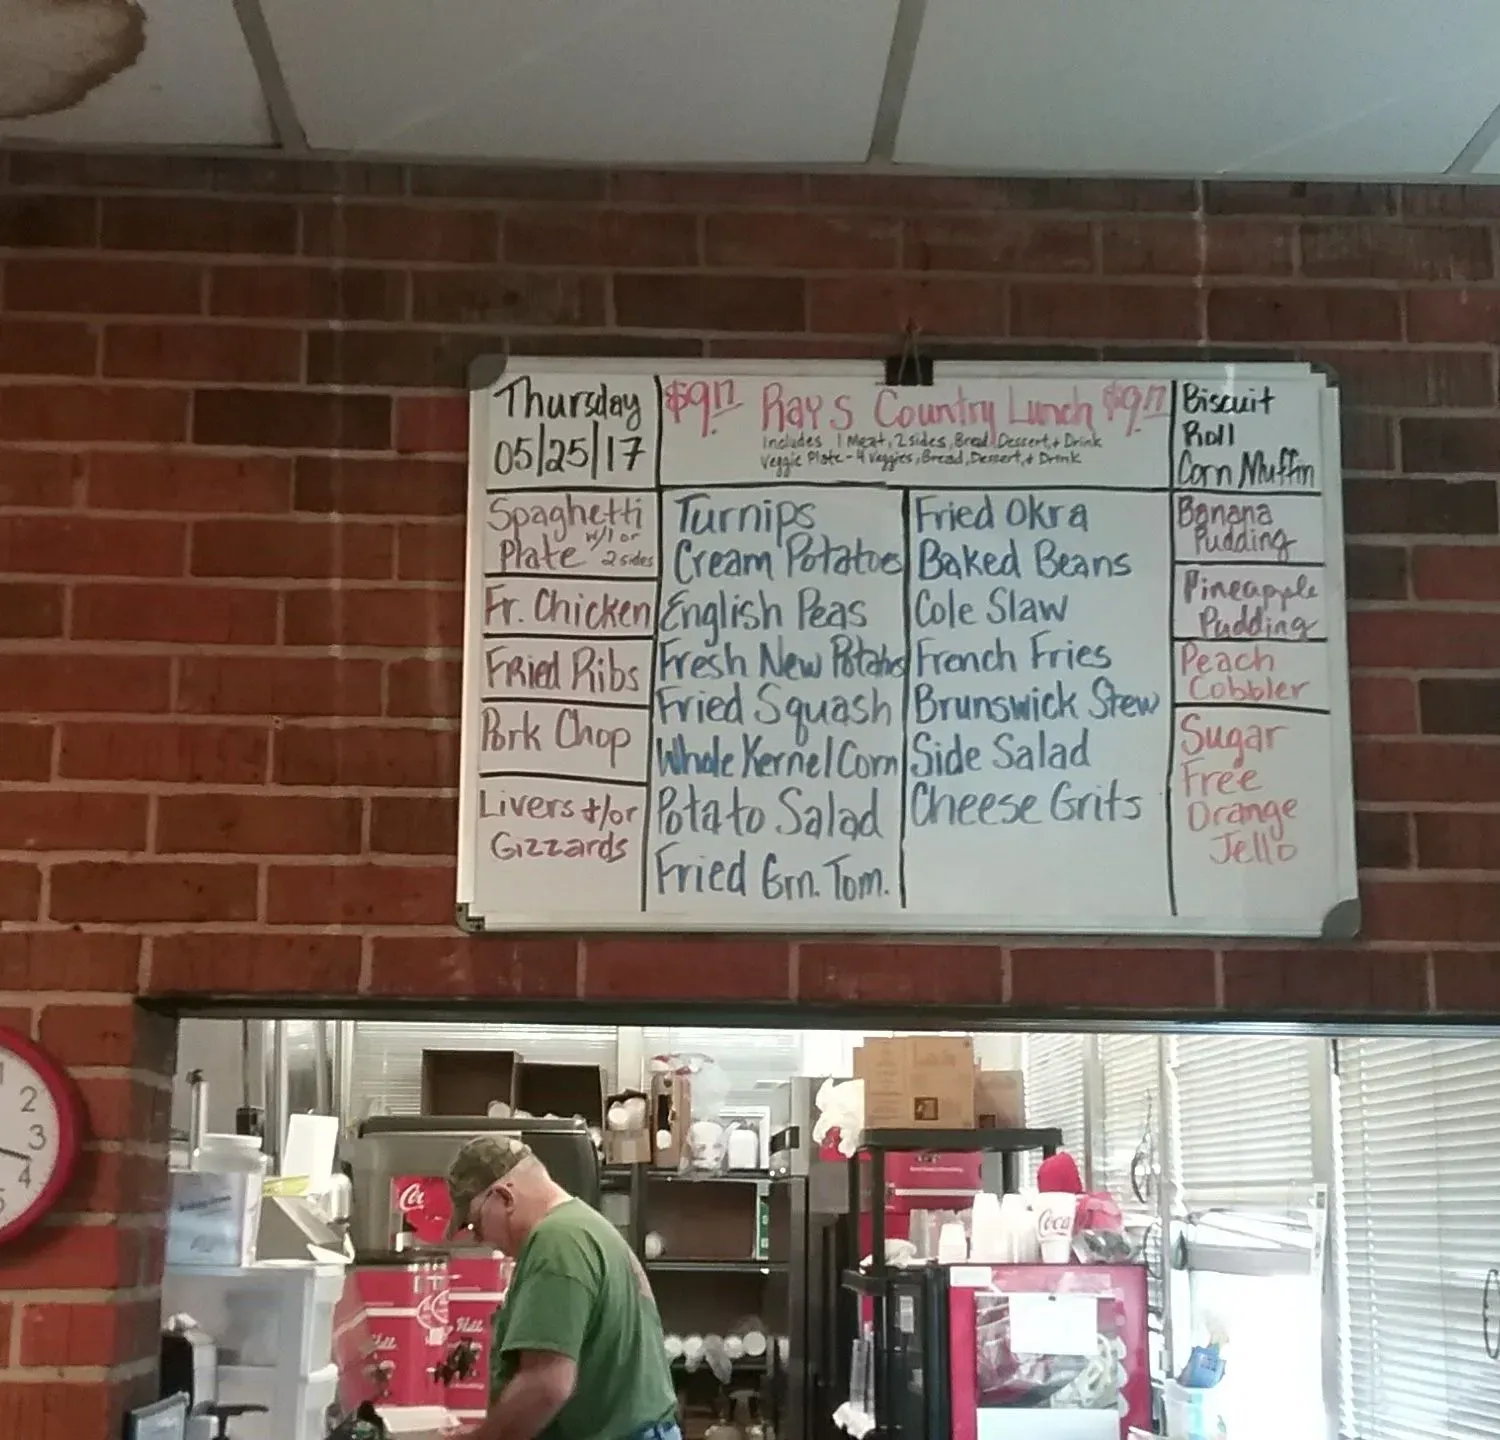 Thursday
05/25/17
$9.17 Ray's Country Lunch $9.17
Includes 1 Meat, 2 sides, Bread, Dessert, + Drink
Veggie Plate - 4 Veggies, Bread, Dessert, + Drink
Biscuit
Roll
Corn Muffin
Spaghetti
Plate w/1 or
2 sides
Fr. Chicken
Fried Ribs
Pork Chop
Livers +/or
Gizzards
Turnips
Cream Potatoes
English Peas
Fresh New Potatoes
Fried Squash
Whole Kernel Corn
Potato Salad
Fried Grn. Tom.
Fried Okra
Baked Beans
Cole Slaw
French Fries
Brunswick Stew
Side Salad
Cheese Grits
Banana
Pudding
Pineapple
Pudding
Peach
Cobbler
Sugar
Free
Orange
Jello
2
3
4
Coca